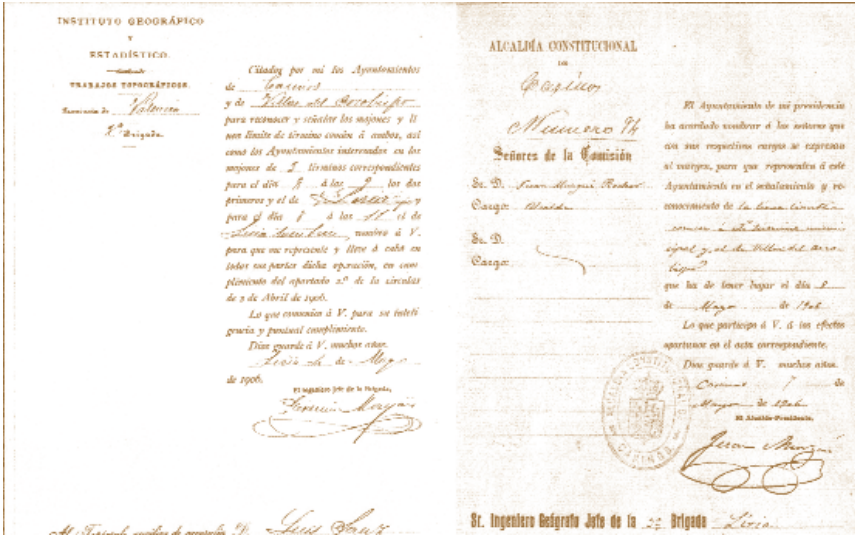 INSTITUTO GEOGRÁFICO
Y
ESTADÍSTICO.
TRABAJOS TOPOGRÁFICOS.
Provincia de Valencia
2ª Brigada.
Citados por mí los Ayuntamientos
de Casinos
y de Villar del Arzobispo
para reconocer y señalar los mojones y lí
nea límite de término común á ambos, así
como los Ayuntamientos interesados en los
mojones de 3 términos correspondientes
para el día 8 á las 9 los dos
primeros y el de
para el día 8 á las 11 el de
Liria, nombro á V.
para que me represente y lleve á cabo en
todas sus partes dicha operación, en cum
plimiento del apartado 2.º de la circular
de 3 de Abril de 1906.
Lo que comunico á V. para su inteli
gencia y puntual cumplimiento.
Dios guarde á V. muchos años.
Liria 4 de Mayo
de 1906.
El Ingeniero Jefe de la Brigada,
Al auxiliar de Geografía D. Luis Sanz
ALCALDÍA CONSTITUCIONAL
DE
Casinos
Número 74
Señores de la Comisión
Sr. D. Juan Murgui
Cargo: Alcalde
Sr. D.
Cargo:
El Ayuntamiento de mi presidencia
ha acordado nombrar á los señores que
con sus respectivos cargos se expresan
al margen, para que representen á este
Ayuntamiento en el señalamiento y re-
conocimiento de la linea limite
comun á este termino muni-
cipal y al de Villar del Arzo-
bispo
que ha de tener lugar el día 8
de Mayo de 1906
Lo que participo á V. á los efectos
oportunos en el acta correspondiente.
Dios guarde á V. muchos años.
Casinos 7 de
Mayo de 1906
El Alcalde-Presidente,
Juan Murgui
ALCALDIA CONSTITUCIONAL
CASINOS
Sr. Ingeniero Geógrafo Jefe de la 2ª Brigada Liria